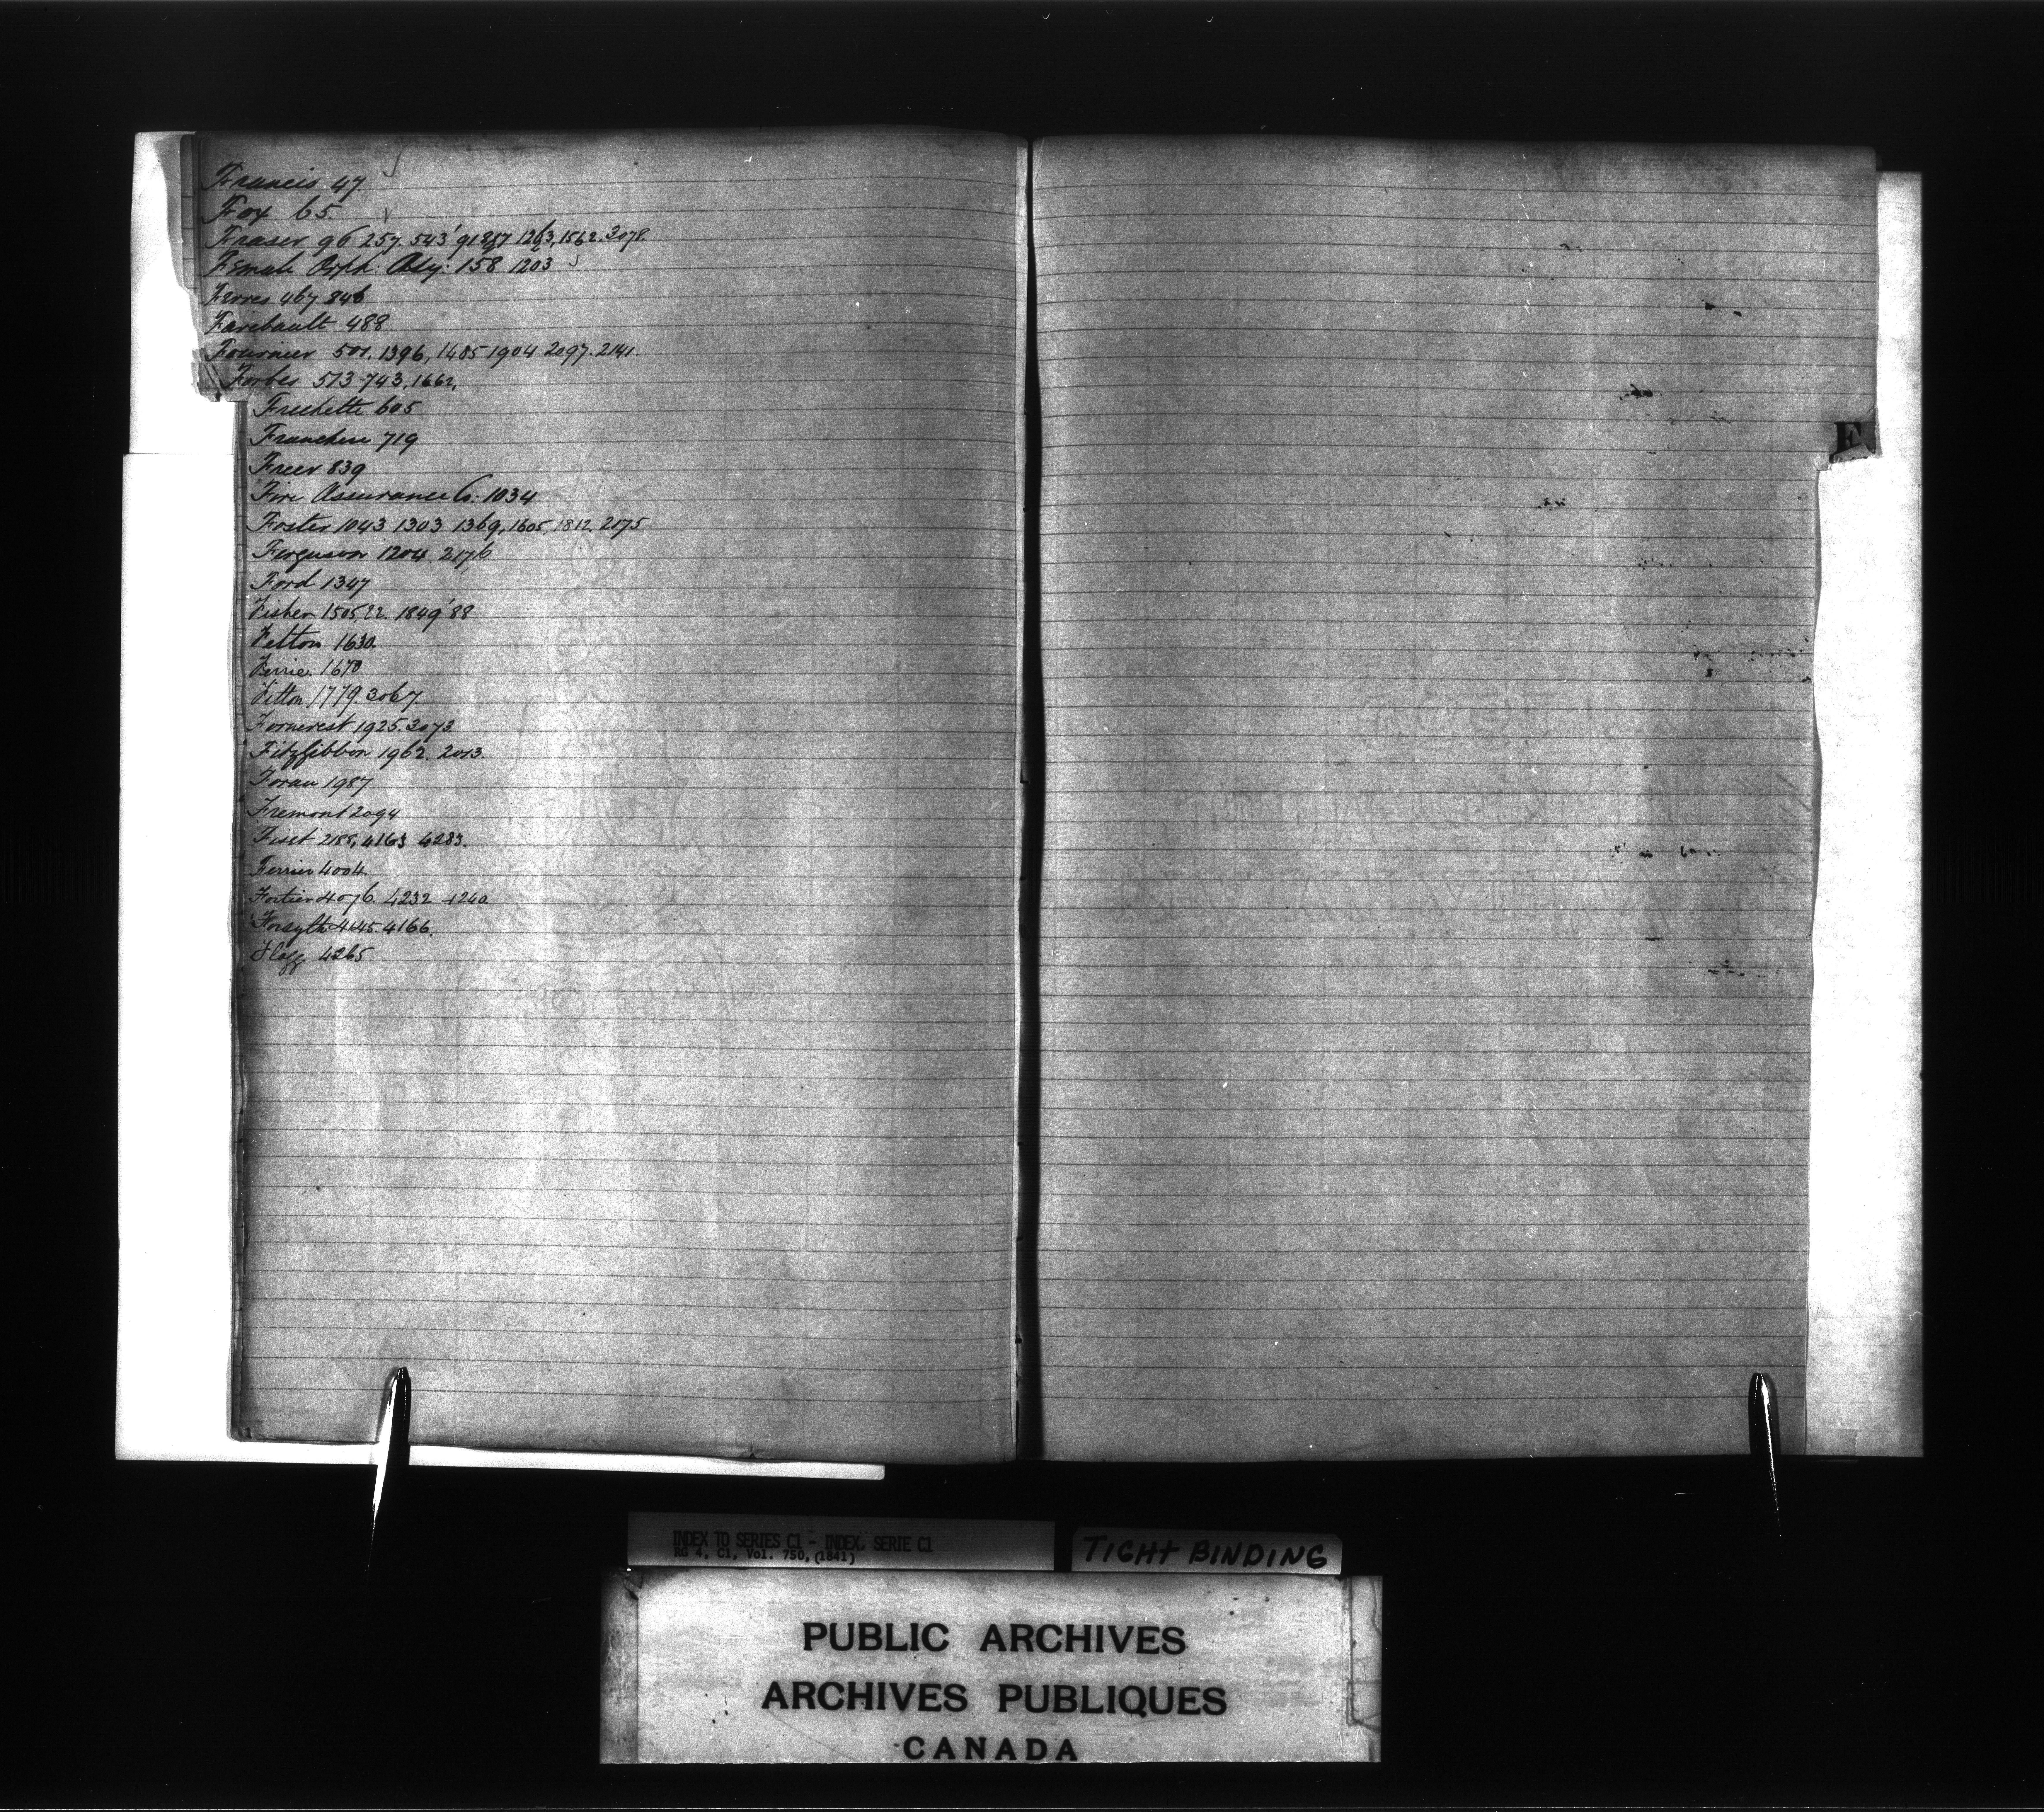 Francis 47
Fox 65
Fraser 96 257. 543 '91 1263, 1562. 3078.
Female Orph: Asy: 158 1203
Ferres 467 846
Faribault 488
Fournier 501. 1396, 1485 1904 2097. 2141.
Forbes 513 743, 1662,
Frechette 605
Franchere 719
Freer 839
Fire Assurance Co: 1034
Foster 1043 1303 1369, 1605, 1812. 2175
Ferguson 1204. 2176
Ford 1347
Fisher 1505, 22. 1849 '88
Felton 1630.
Ferrie 1670
Fitton 1779. 3067
Forneret 1925. 3073.
FitzGibbon 1962. 2013.
Foran 1987
Fremont 2094
Fiset 2188, 4163 4283.
Ferrier 4004.
Fortier 4076. 4232 4240
Forsyth 4145. 4166.
Flagg 4265
F
INDEX TO SERIES C1 - INDEX, SERIE C1
RG 4, C1, Vol. 750, (1841)
TIGHT BINDING
PUBLIC ARCHIVES
ARCHIVES PUBLIQUES
CANADA